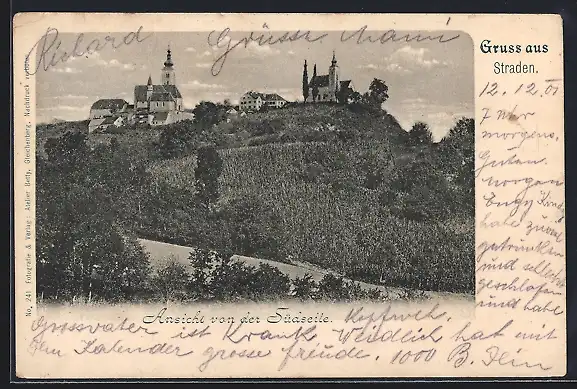 Richard Grüsse, Mami
Gruss aus
Straden.
12.12.01
7 Uhr
morgens.
Guten
morgen
habe
getrunken
und selbst
geschlafen
und habe
Kopfweh.
No. 241 Fotografie & Verlag: Atelier Betty, Gleichenberg. Nachdruck verboten.
Ansicht von der Südseite.
Grossvater ist Krank. Weidlich hat mit
dem Kalender grosse freude. 1000 B.